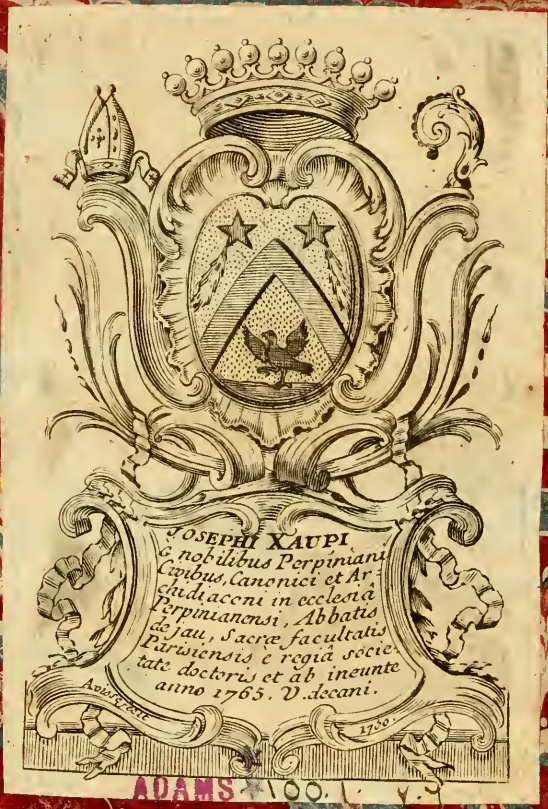 JOSEPHI XAUPI
è nobilibus Perpiniani
Civibus, Canonici et Ar-
chidiaconi in ecclesiâ
Perpinianensi, Abbatis
de jau, Sacræ facultatis
Parisiensis è regiâ socie-
tate doctoris et ab ineunte
anno 1765. V. decani.
fecit
1750.
ADAMS 100.1